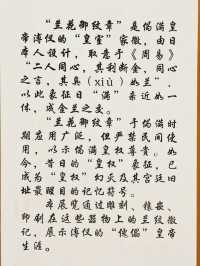 “兰花御纹章”是伪满皇
帝溥仪的“皇室”家徽，由日
本人设计，取意于《周易》
“二人同心，其利断金、同心
之言，其臭（xiù）如兰”，
以此象征日“满”亲近如一
体，成金兰之交。
“兰花御纹章”于伪满时
期应用广泛，但严禁民间使
用，以示伪满皇权尊贵。如
今，昔日的“皇权”象征，已
成为“皇权”幻灭及其宫廷旧
址最醒目的记忆符号。
本展览通过雕刻、镶嵌、
印刷在这些器物上的兰纹徽
记，展示溥仪的“傀儡”皇帝
生涯。